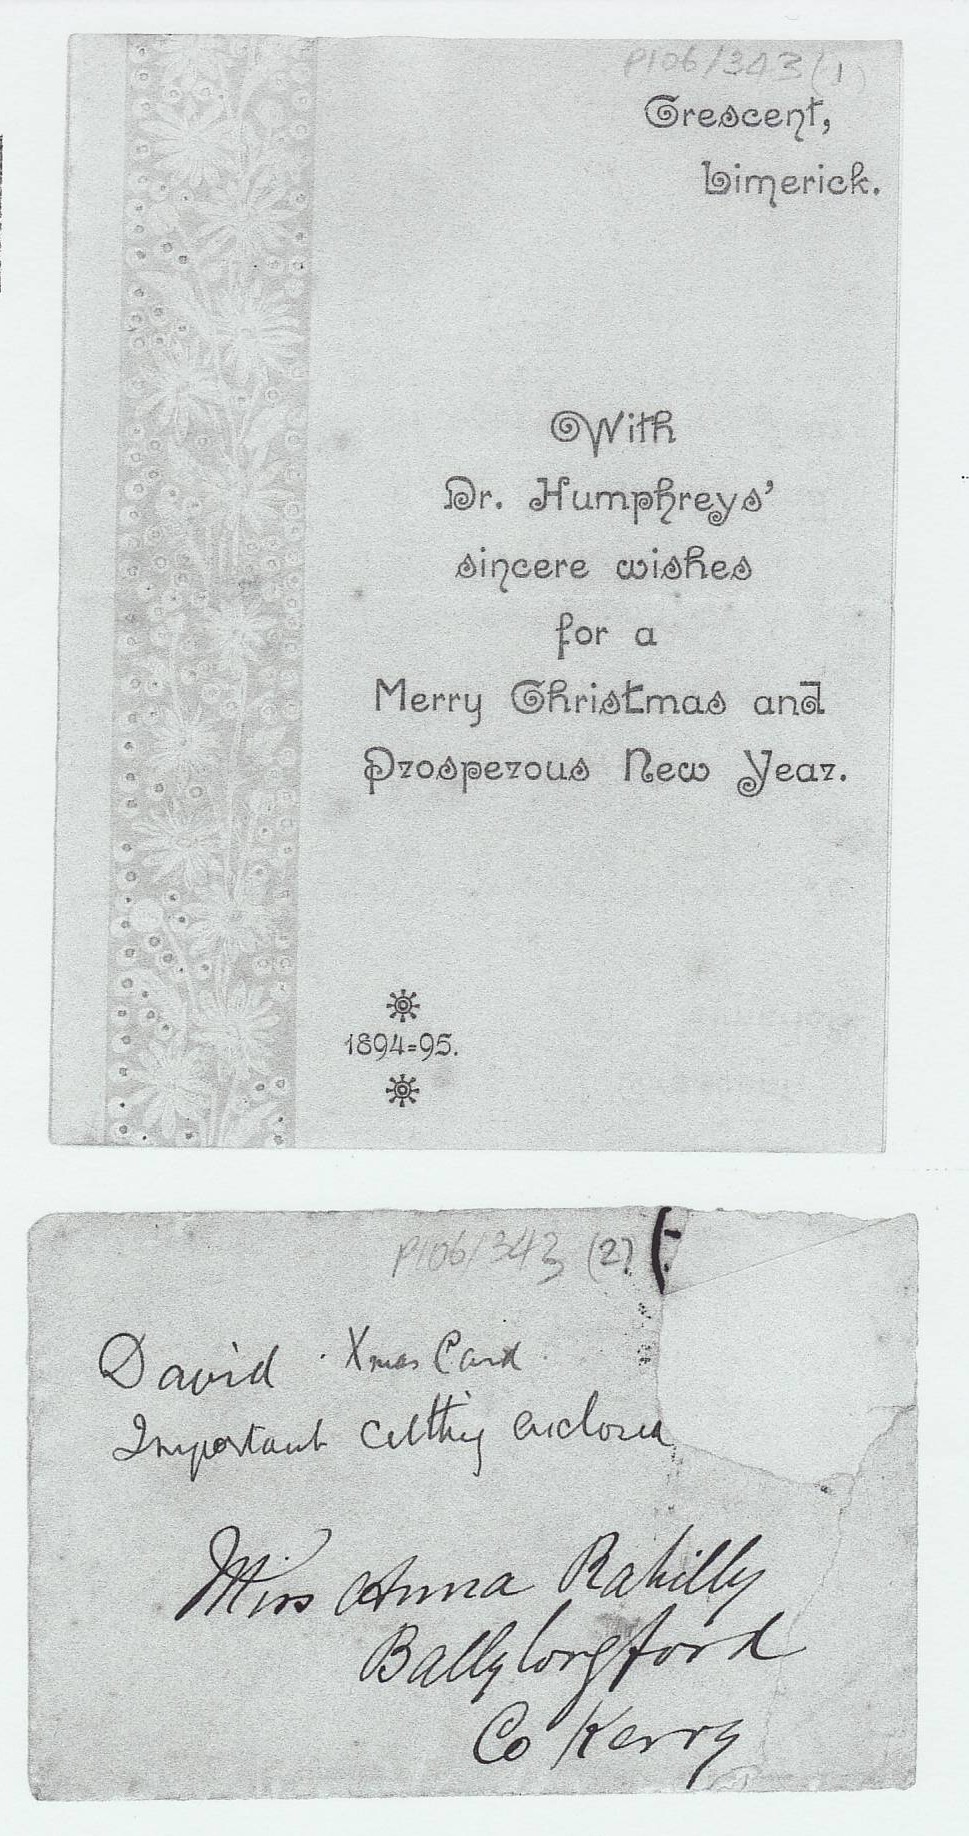 P106/343 (1)
Crescent,
Limerick.
With
Dr. Humphreys'
sincere wishes
for a
Merry Christmas and
Prosperous New Year.
1894=95.
P106/343 (2)
David Xmas Card
Important Cutting enclosed
Miss Anna Rahilly
Ballylongford
Co Kerry